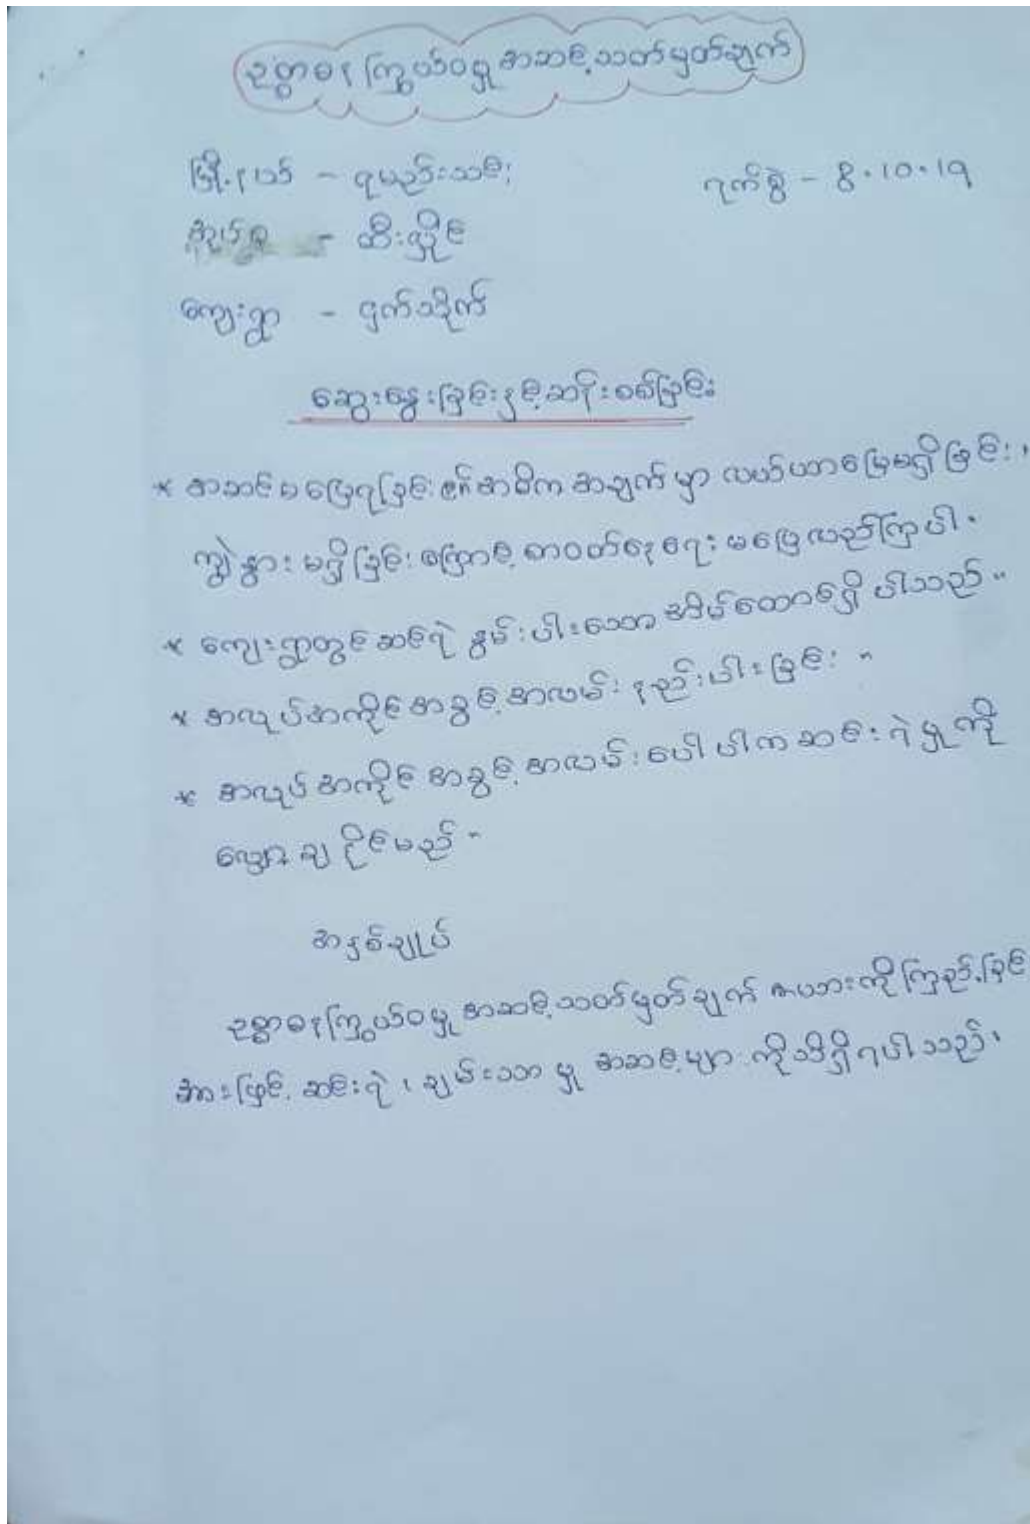 ဥစ္စာဓနကြွယ်ဝမှုအဆင့်သတ်မှတ်ချက်
မြို့နယ် - ရမည်းသင်း
ရက်စွဲ - 8.10.19
အုပ်စု - ဆီးလှိုင်
ကျေးရွာ - ငှက်သိုက်
ဆွေးနွေးခြင်းနှင့်ဆန်းစစ်ခြင်း
* အဆင်မပြေရခြင်း အဓိကအချက်မှာ လယ်ယာမြေမရှိခြင်း၊
ကျွဲနွားမရှိခြင်းကြောင့် စာဝတ်နေရေး မပြေလည်ကြပါ၊
* ကျေးရွာတွင်ဆင်ရဲနွမ်းပါးသော အိမ်ထောင်ရှိပါသည်။
* အလုပ်အကိုင်အခွင့်အလမ်းနည်းပါးခြင်း။
* အလုပ်အကိုင်အခွင့်အလမ်းပေါ်ပါကဆင်းရဲမှုကို
လျှော့ချနိုင်မည်။
အနှစ်ချုပ်
ဥစ္စာဓနကြွယ်ဝမှုအဆင့်သတ်မှတ်ချက် ဇယားကိုကြည့်ခြင်
အားဖြင့် ဆင်းရဲ၊ ချမ်းသာမှု အဆင့်များကိုသိရှိရပါသည်၊